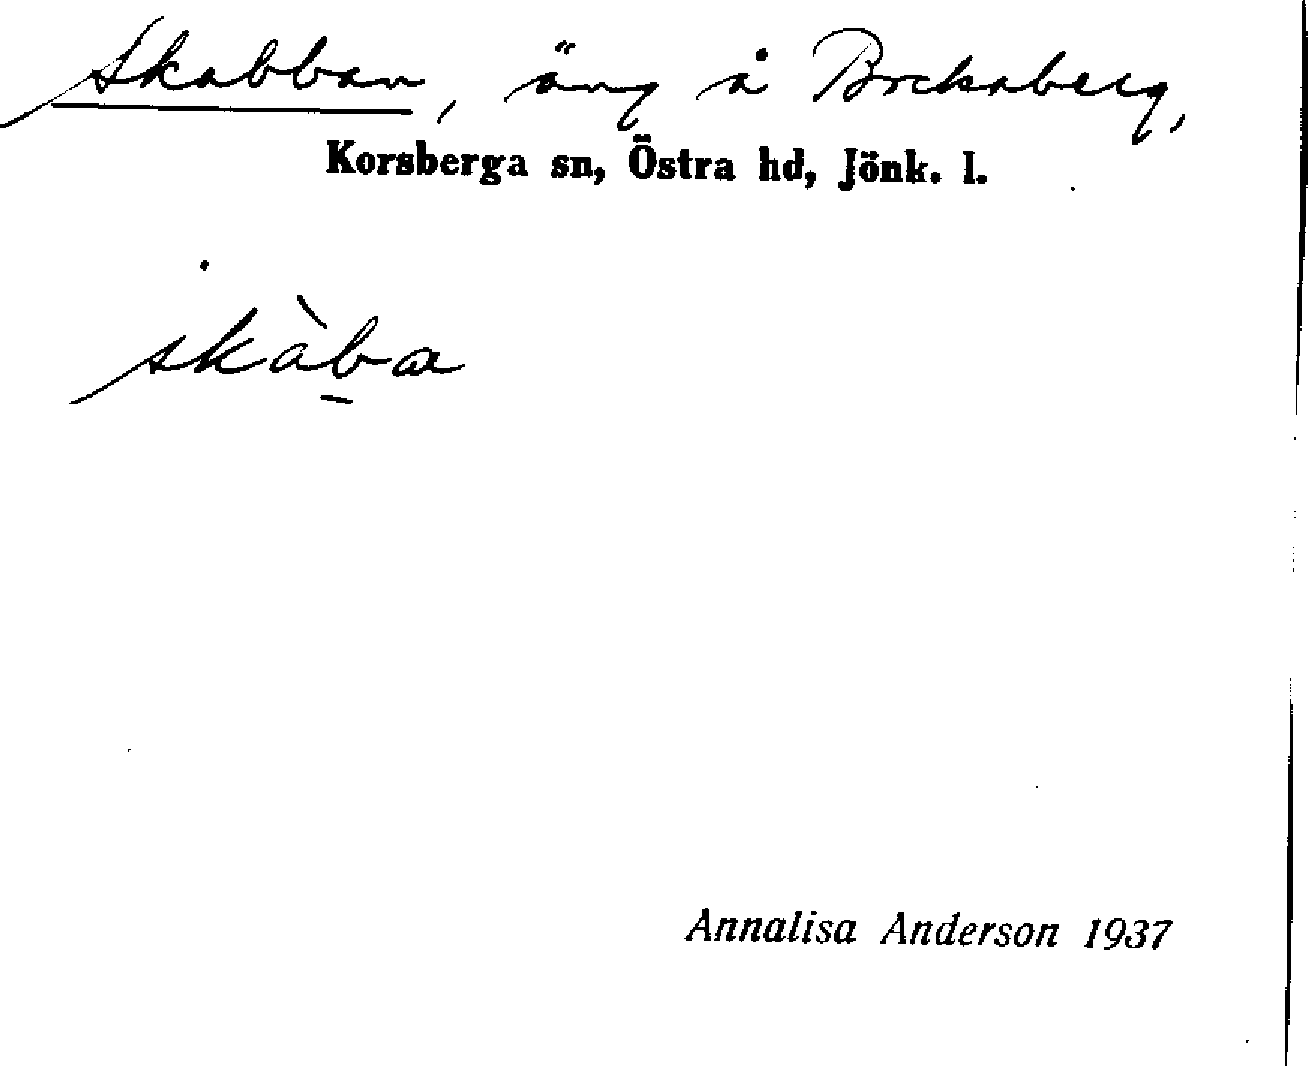 Skabban, äng å Bocksberg,
Korsberga sn, Östra hd, Jönk. l.
skàba
Annalisa Anderson 1937